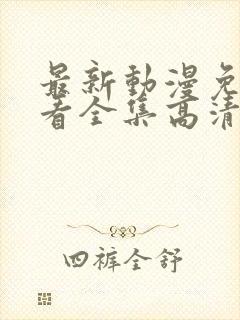 最新動漫免
看全集高清
四裤全舒